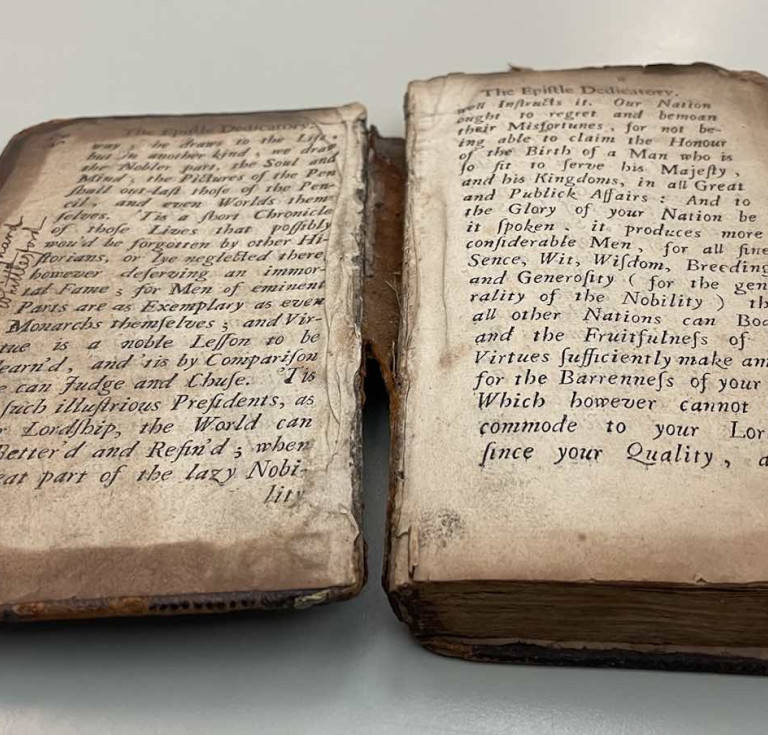 The Epiſtle Dedicatory.
way; he draws to the Life,
but in another kind; we draw
the Nobler part, the Soul and
Mind; the Pictures of the Pen
ſhall out-laſt thoſe of the Pen-
cil, and even Worlds them-
ſelves. 'Tis a ſhort Chronicle
of thoſe Lives that poſſibly
wou'd be forgotten by other Hi-
ſtorians, or lye neglected there
however deſerving an immor-
tal Fame; for Men of eminent
Parts are as Exemplary as even
Monarchs themſelves; and Vir-
tue is a noble Leſſon to be
learn'd, and 'tis by Compariſon
can Judge and Chuſe. 'Tis
ſuch illuſtrious Preſidents, as
Lordſhip, the World can
Better'd and Refin'd; when
part of the lazy Nobi-
lity
The Epiſtle Dedicatory.
well Inſtructs it. Our Nation
ought to regret and bemoan
their Misfortunes, for not be-
ing able to claim the Honour
of the Birth of a Man who is
ſo fit to ſerve his Majeſty,
and his Kingdoms, in all Great
and Publick Affairs: And to
the Glory of your Nation be
it ſpoken, it produces more
conſiderable Men, for all fine
Sence, Wit, Wiſdom, Breeding
and Generoſity ( for the gen
rality of the Nobility ) th
all other Nations can Boa
and the Fruitfulneſs of
Virtues ſufficiently make am
for the Barrenneſs of your
Which however cannot
commode to your Lor
ſince your Quality, a